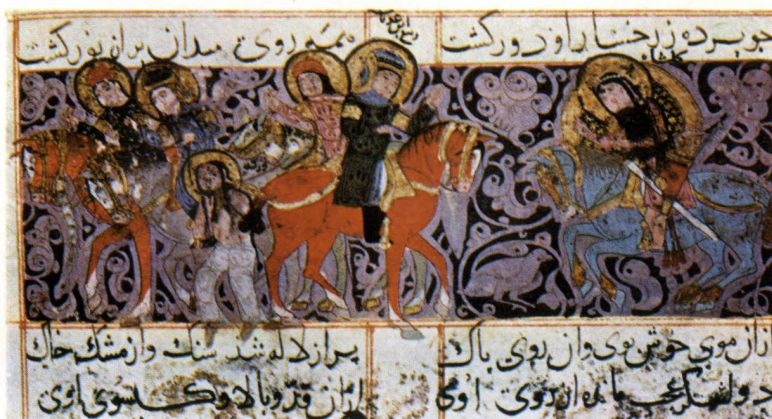 جو برده ز رخسار او دور گشت همه روی میدان براز نور گشت
گلشاه
ازان موی خوش بوی وان روی باک براز لاله شد سنک وازمشک خاک
دو لشکر عجب مانده از روی اوی ازان قد و بالا و کیسوی اوی